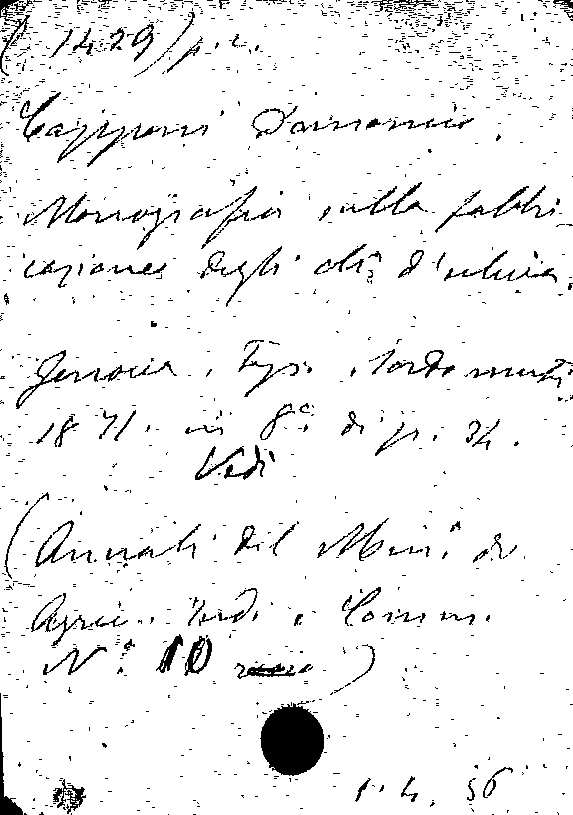 (1429) p. c.
Capponi Domenico.
Monografia sulla fabbri
cazione degli olî d'uliva.
Genova, Typ. Sordo muti
1871. in 8º. di p. 34.
Vedi
(Annali del Minº. di
Agric. Ind. e Comm.
Nº. 10)
1. 4. 56